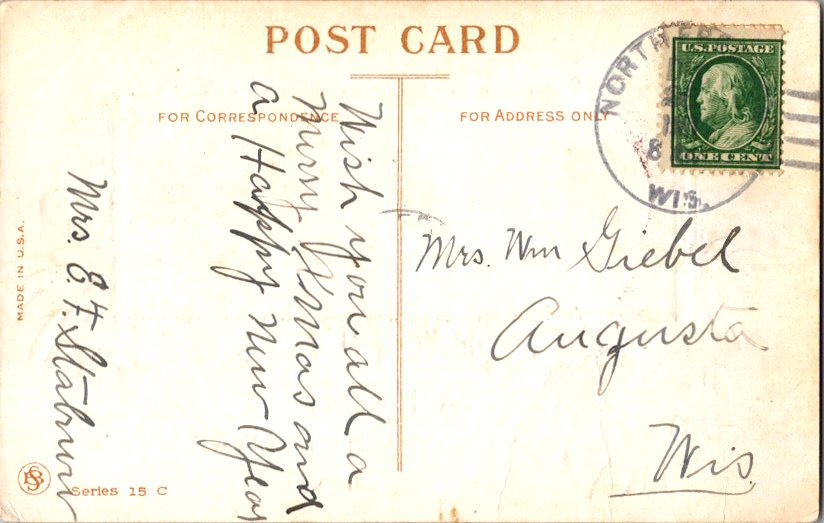 POST CARD
FOR CORRESPONDENCE
FOR ADDRESS ONLY
U.S. POSTAGE
ONE CENT
NORTH
8
WIS.
Wish you all a
Merry Xmas and
a Happy New Year
Mrs. E. F.
Mrs. Wm Giebel
Augusta
Wis
MADE IN U.S.A.
Series 15 C